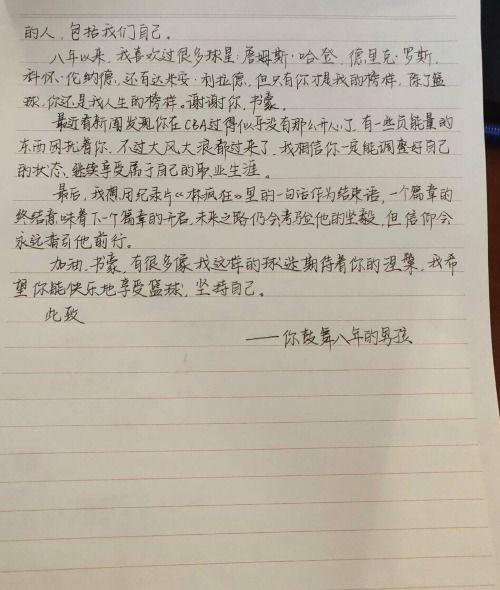 的人，包括我们自己。
八年以来，我喜欢过很多球星：詹姆斯·哈登，德里克·罗斯，
科怀·伦纳德，还有达米安·利拉德，但只有你才是我的榜样，除了篮
球，你还是我人生的榜样。谢谢你，书豪。
最近看新闻发现你在CBA过得似乎没有那么开心了，有一些负能量的
东西困扰着你，不过大风大浪都过来了，我相信你一定能调整好自己
的状态，继续享受属于自己的职业生涯。
最后，我想用纪录片《林疯狂》里的一句话作为结束语，一个篇章的
终结意味着下一个篇章的开启，未来之路仍会考验他的坚毅，但信仰会
永远指引他前行。
加油，书豪，有很多像我这样的球迷期待着你的涅槃，我希
望你能快乐地享受篮球，坚持自己。
此致
——你鼓舞八年的男孩